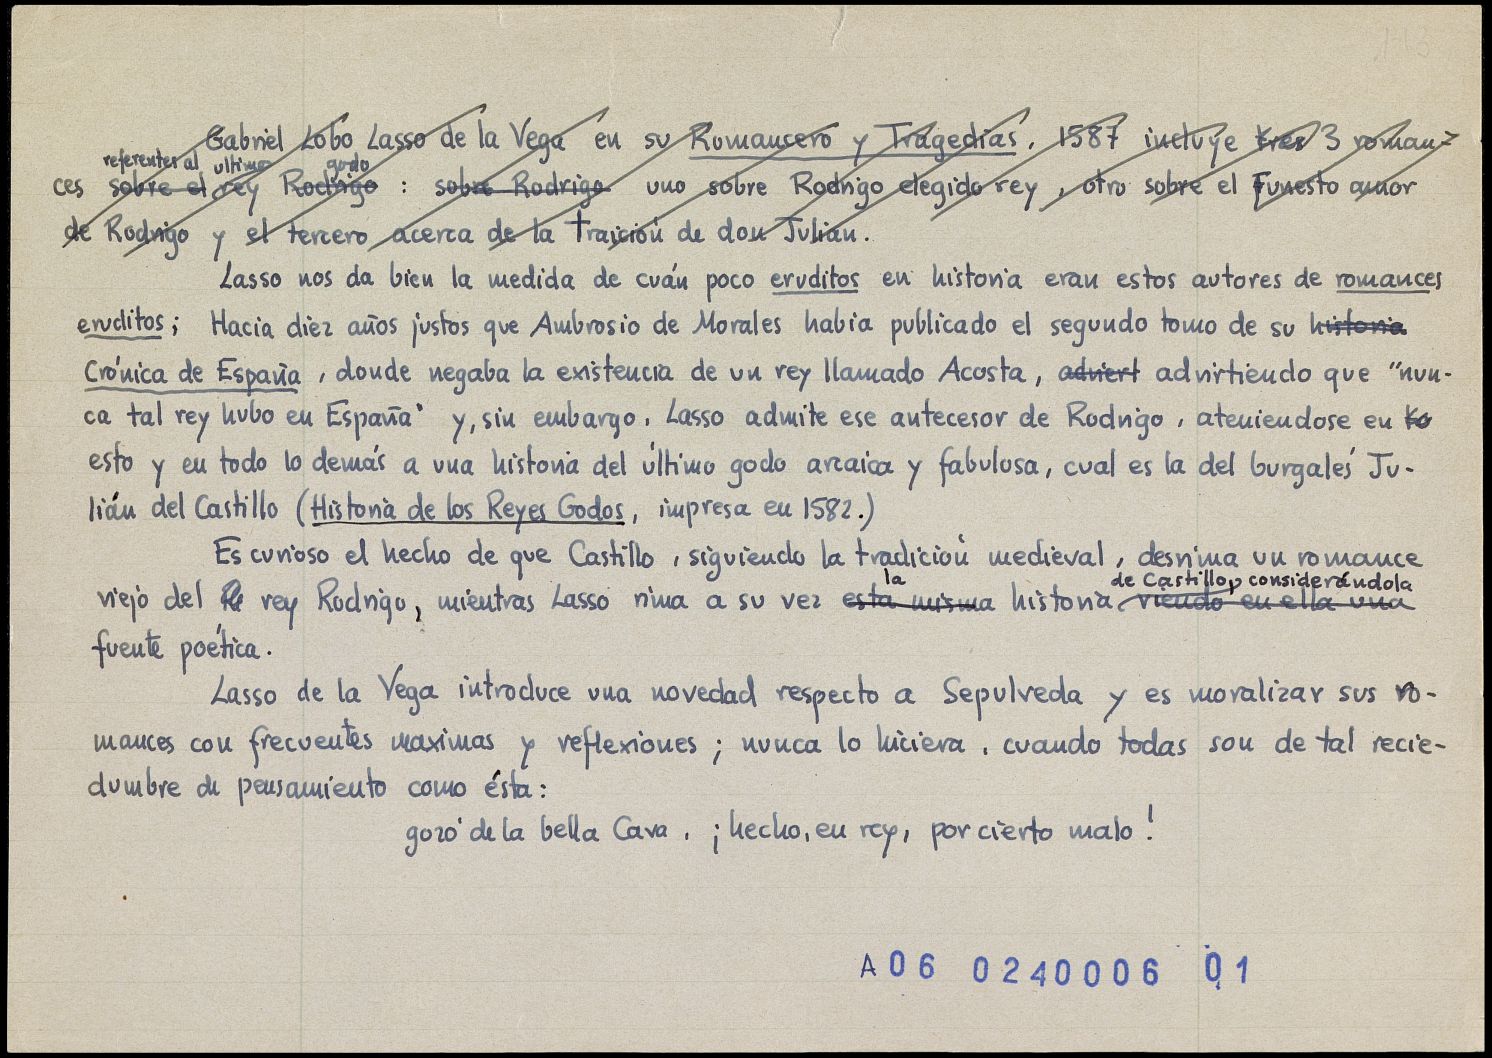 Gabriel Lobo Lasso de la Vega en su Romancero y Tragedias, 1587 incluye tres 3 roman-
referentes al ultimo godo
ces sobre el rey Rodrigo : sobre Rodrigo uno sobre Rodrigo elegido rey, otro sobre el funesto amor
de Rodrigo y el tercero acerca de la traición de don Julián.
Lasso nos da bien la medida de cuán poco eruditos en historia eran estos autores de romances
eruditos; Hacia diez años justos que Ambrosio de Morales habia publicado el segundo tomo de su historia
Crónica de España, donde negaba la existencia de un rey llamado Acosta, adviert advirtiendo que "nun-
ca tal rey hubo en España" y, sin embargo, Lasso admite ese antecesor de Rodrigo, ateniendose en to
esto y en todo lo demás a una historia del último godo arcaica y fabulosa, cual es la del burgalés Ju-
lián del Castillo (Historia de los Reyes Godos, impresa en 1582.)
Es curioso el hecho de que Castillo, siguiendo la tradición medieval, desrima un romance
la de Castillo, considerándola
viejo del rey Rodrigo, mientras Lasso rima a su vez esta misma historia viendo en ella una
fuente poética.
Lasso de la Vega introduce una novedad respecto a Sepulveda y es moralizar sus ro-
mances con frecuentes maximas y reflexiones; nunca lo hiciera, cuando todas son de tal recie-
dumbre de pensamiento como ésta:
gozó de la bella Cava, ¡hecho, en rey, por cierto malo!
A06 0240006 01